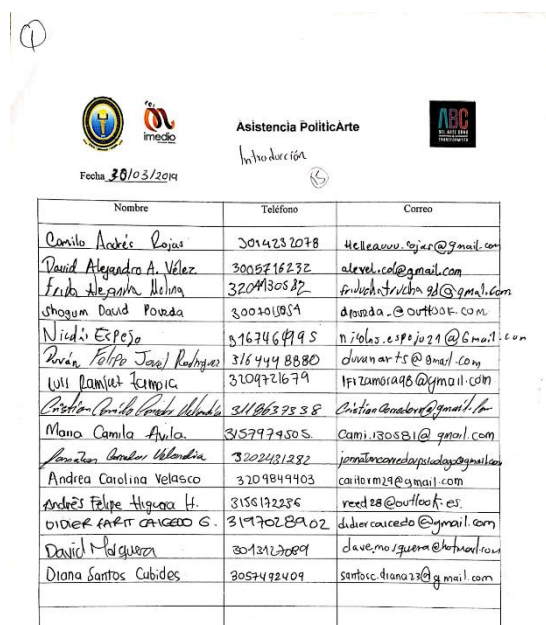 1
imedio
Asistencia PoliticArte
ABC
DEL ARTE COMO
TRANSFORMACIÓN
Introducción
15
Fecha 30/03/2019
Nombre Teléfono Correo
Camilo Andrés Rojas 3014232078
David Alejandro A. Vélez 3005716232 alevel.col@gmail.com
Frida Alejandra Molina
shogum David Poveda dpoveda_@outlook.com
Nicolás Espejo nicolas.espejo21@Gmail.com
Duván Felipe Rodriguez 3164448880 duvanarts@gmail.com
Luis Ramirez 3209721679
Cristian Camilo Corredor Velandia 3118639338
Maria Camila Avila. 3157974505. Cami.130581@gmail.com
Jonatan Corredor Velandia 3202431282 jonnatancorredorpsicologo@gmail.com
Andrea Carolina Velasco 3209849403 caitorm29@gmail.com
Andrés Felipe Higuera H. 3156172236 reed28@outlook.es.
DIDIER FARIT CAICEDO G. 3197028902 didiercaicedo@gmail.com
David Mosquera 3013127089 dave.mosquera@hotmail.com
Diana Santos Cubides 3057492409 santosc.diana23@gmail.com